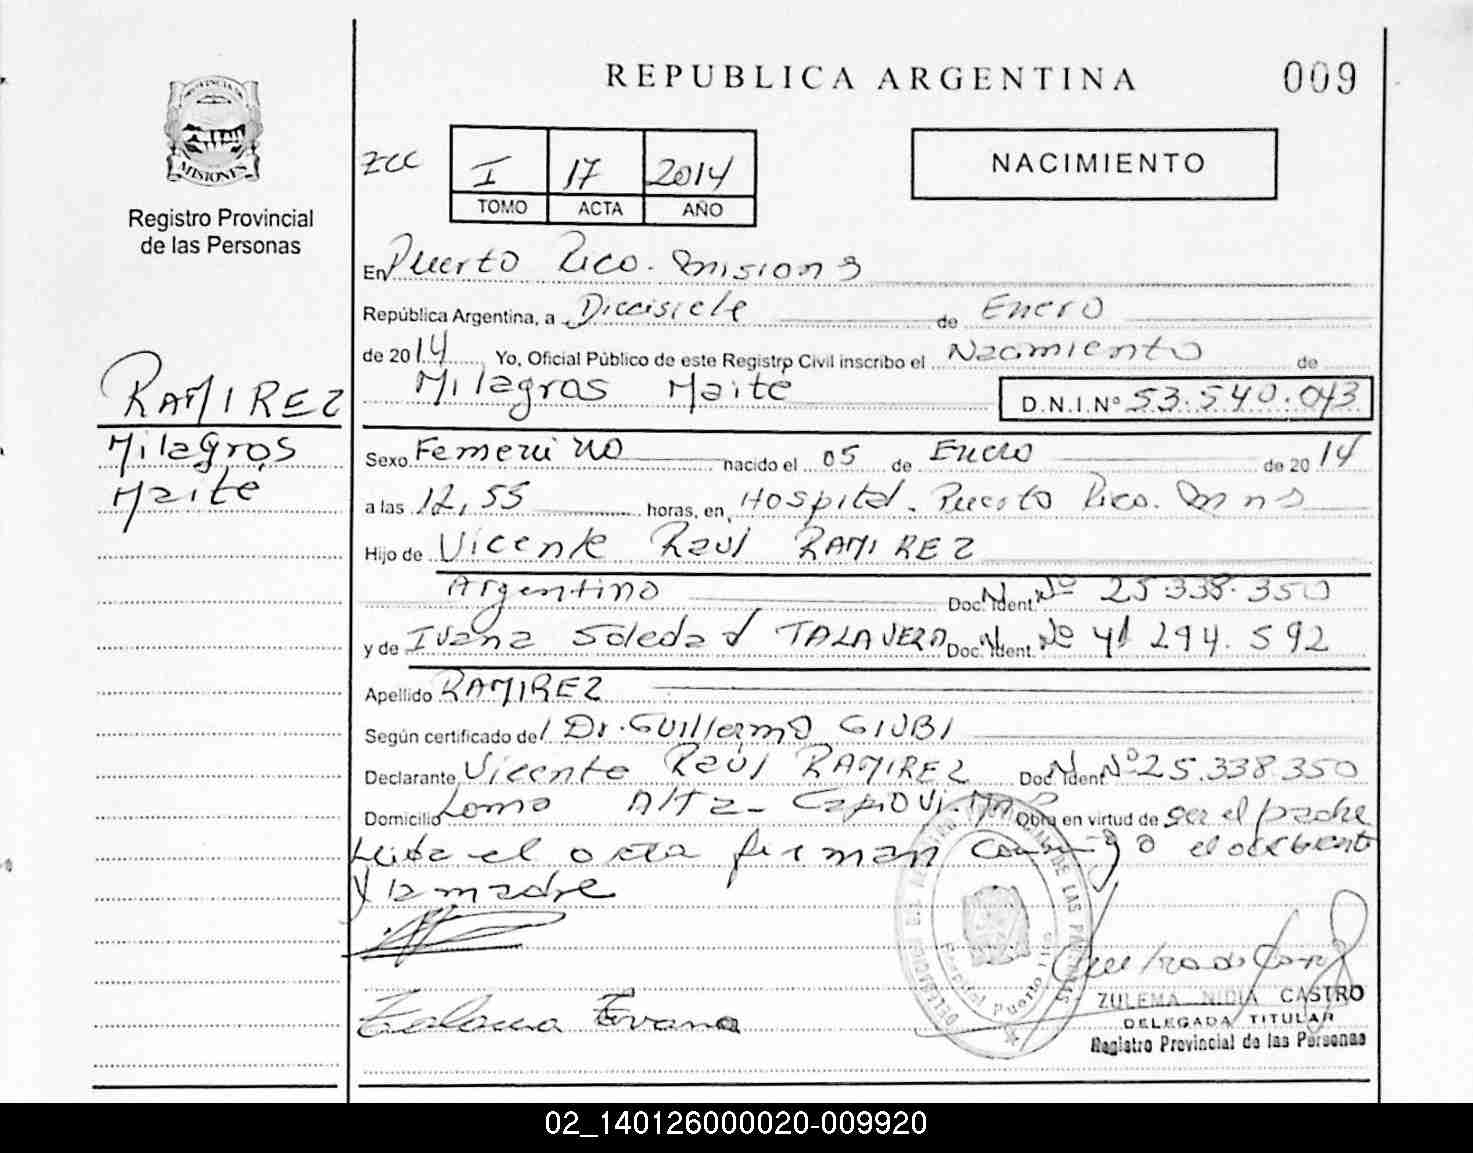 REPUBLICA ARGENTINA
009
PROVINCIA DE
MISIONES
Registro Provincial
de las Personas
ZCC
I 17 2014
TOMO ACTA AÑO
NACIMIENTO
En Puerto Rico. Misiones
República Argentina, a Diecisiete de Enero
de 2014 Yo, Oficial Público de este Registro Civil inscribo el Nacimiento de
Milagros Maite D.N.I.Nº 53.540.043
RAMIREZ
Milagros
Maite
Sexo Femenino nacido el 05 de Enero de 2014
a las 12,55 horas, en Hospital. Puerto Rico. Mns
Hijo de Vicente Raúl RAMIREZ
Argentino Doc. Ident. Nº 25.338.350
y de Ivana Soledad TALAVERA Doc. Ident. Nº 41 294. 592
Apellido RAMIREZ
Según certificado del Dr. Guillermo GIUBI
Declarante Vicente Raúl RAMIREZ Doc. Ident Nº 25.338.350
Domicilio Loma Alta - Capiovi. Mns Obra en virtud de ser el padre
Leida el acta firman conmigo el
y la madre
Talavera Ivana
ZULEMA NIDIA CASTRO
DELEGADA TITULAR
Registro Provincial de las Personas
02_140126000020-009920